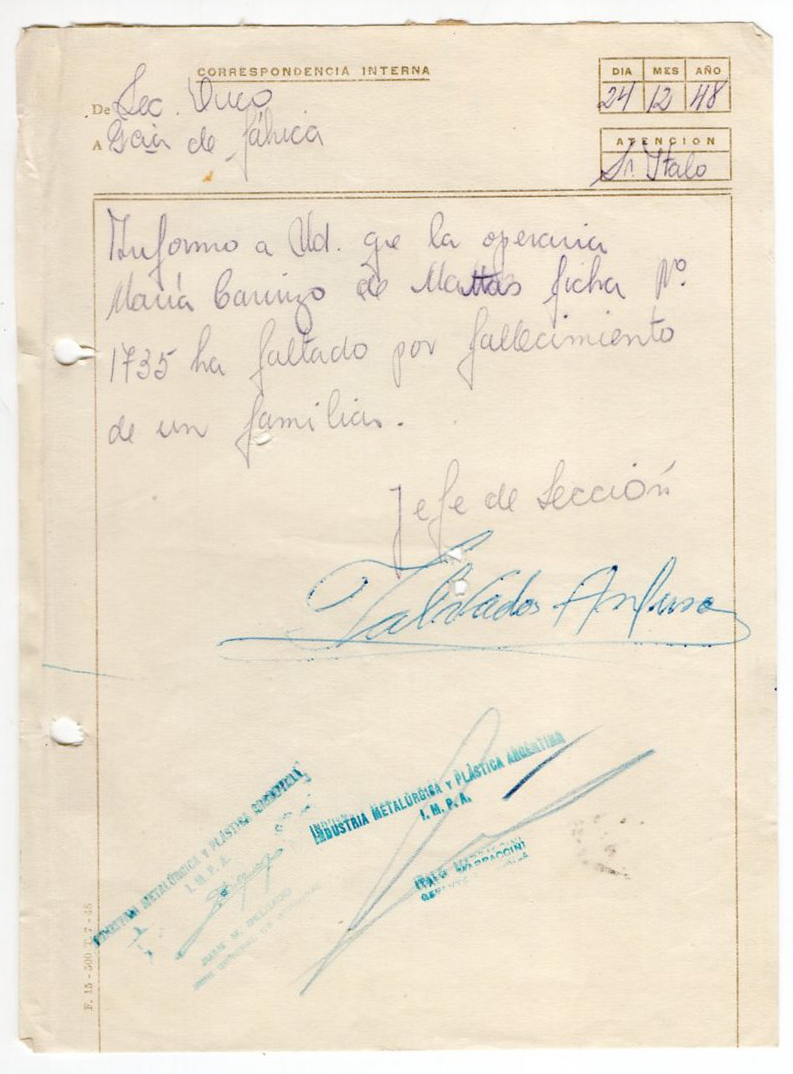 CORRESPONDENCIA INTERNA
DIA MES AÑO
24 12 48
De Sec. Duco
A Gcia de fábrica
ATENCION
Sr. Italo
Informo a Ud. qe la operaria
María Carrizo de Mattos ficha Nº
1735 ha faltado por fallecimiento
de un familiar.
Jefe de Sección
INDUSTRIA METALÚRGICA Y PLÁSTICA ARGENTINA
I. M. P. A.
ITALO MARRACCINI
GERENTE
INDUSTRIA METALÚRGICA Y PLÁSTICA ARGENTINA
I. M. P. A.
JUAN M. DELGADO
F. 15 - 500 T. 7 - 48